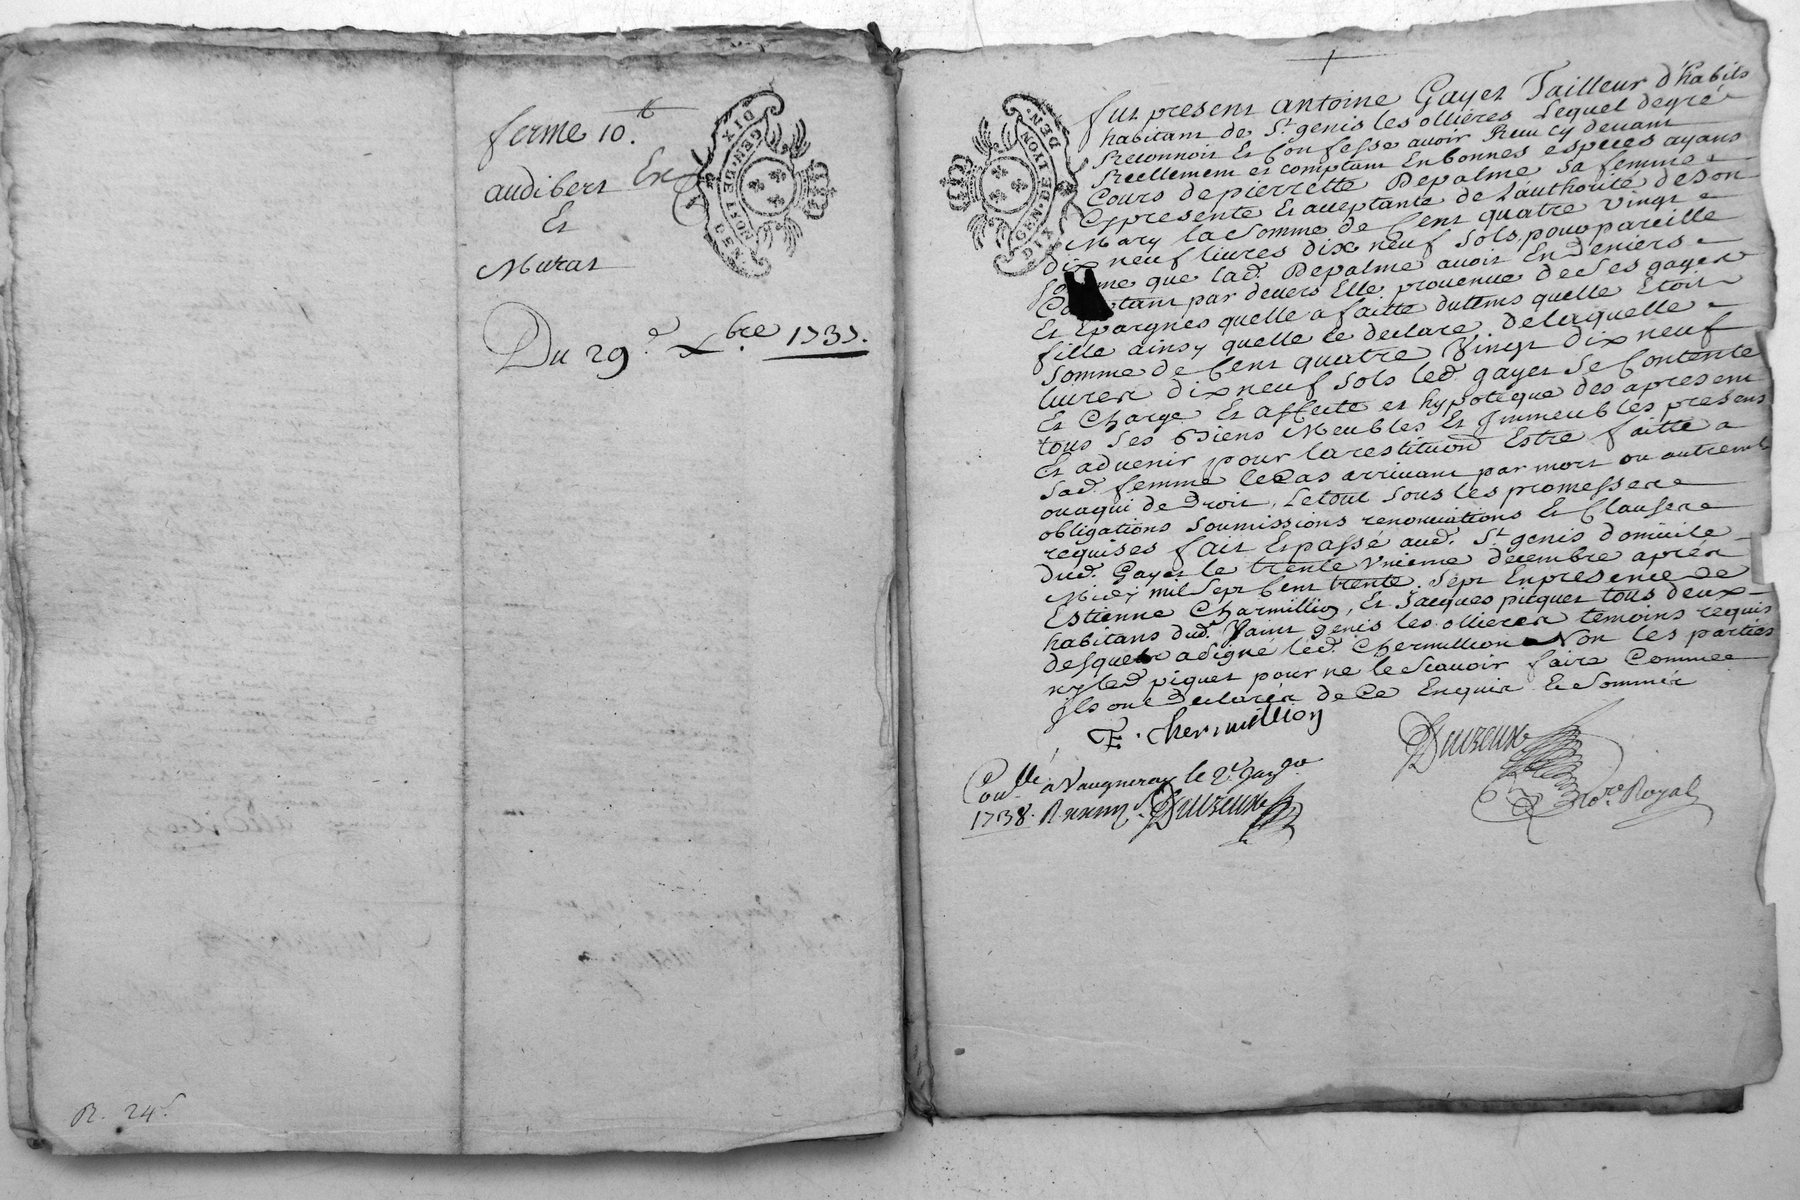 ferme 10.tt
audibert
Et
Murat
Du 29.e xbre 1737.
DEN. DIX
GEN. DE LYON
R. 24s
fut present antoine Gayet Tailleur d'habits
habitant de St. genis les ollieres Lequel de gré
Reconnoit Et Confesse avoir Receu cy devant
Reellement et comptant En bonnes especes ayans
Cours de pierrette Depalme sa femme
Cy presente Et acceptante de L'authorité de son
Mary la Somme de Cent quatre vingt
dix neuf livres dix neuf sols pour pareille
somme que lad. Depalme avoit En Deniers
Comptant par devers Elle provenue de Ses gages
Et Epargnes quelle a faitte du tems quelle Etoit
fille ainsy quelle le declare, de laquelle
Somme de Cent quatre Vingt dix neuf
livres dix neuf sols led. gayet Se Contente
Et Charge Et affecte et hypoteque des apresent
tous Ses Biens Meubles Et Immeubles presens
Et advenir pour la restitution Estre faitte a
Sad. femme le Cas arrivant par mort ou autremt.
ou a qui de Droit, Le tout sous les promesses
obligations soumissions renonciations Et Clauses
requises fait Et passé aud. St. genis domicile
dud. Gayet le trente Unieme decembre après
Midy mil Sept Cent trente Sept En presence de
Estienne Charmillion, Et Jacques piquet tous deux
habitans dud. Saint genis les ollieres temoins requis
desquels a signé led. Chermillion Non les parties
ny led piquet pour ne le Scavoir faire Comme
Ils ont Declarés de Ce Enquis Et Sommés
E. Chermillion
Duzeux
Nore. Royal
Conllé a Vaugneray le 2e. Janvr.
1738. R Duzeux